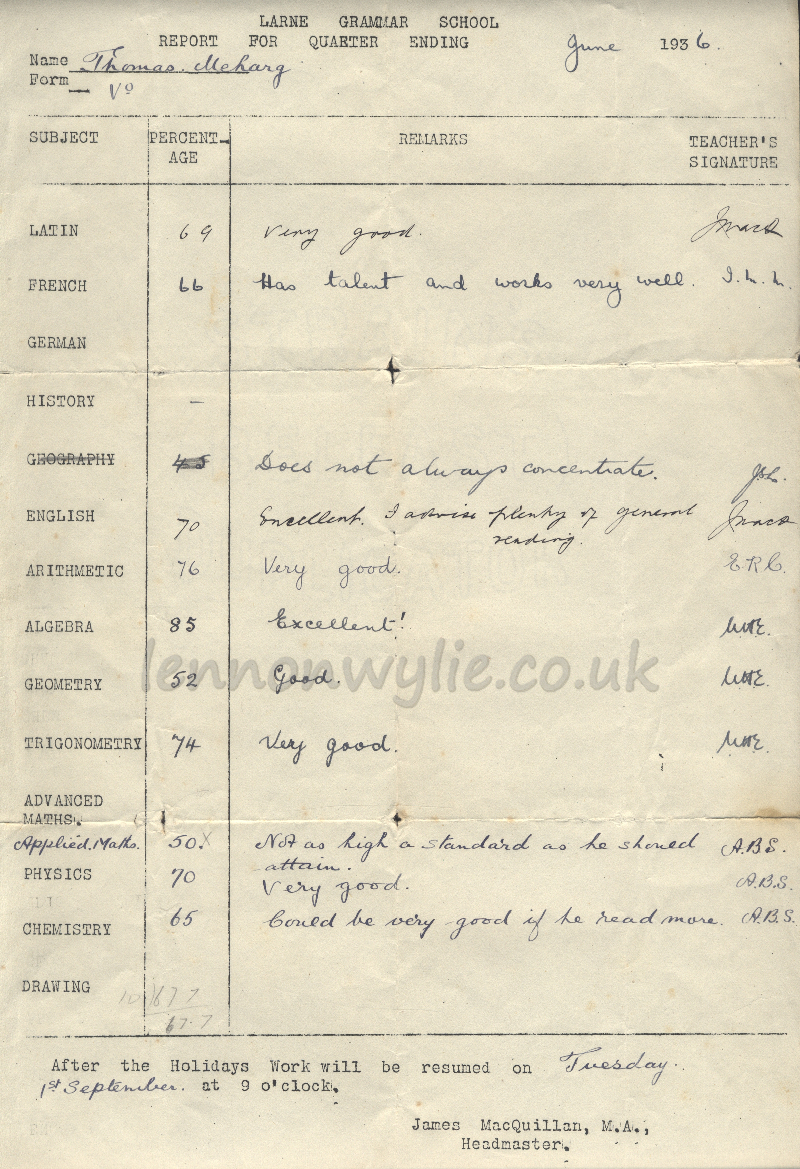 LARNE GRAMMAR SCHOOL
REPORT FOR QUARTER ENDING June 1936.
Name Thomas Meharg
Form Vᵃ
SUBJECT PERCENT- AGE REMARKS TEACHER'S SIGNATURE
LATIN 69 Very good. JMacQ
FRENCH 66 Has talent and works very well.
GERMAN
HISTORY —
GEOGRAPHY 45 Does not always concentrate.
ENGLISH 70 Excellent. I advise plenty of general JMacQ
reading.
ARITHMETIC 76 Very good. E.R.C.
ALGEBRA 85 Excellent!
lennonwylie.co.uk
GEOMETRY 52 Good.
TRIGONOMETRY 74 Very good.
ADVANCED
MATHS.
Applied Maths. 50.X Not as high a standard as he should A.B.S.
attain.
PHYSICS 70 Very good. A.B.S.
CHEMISTRY 65 Could be very good if he read more. A.B.S.
DRAWING
10 677
67.7
After the Holidays Work will be resumed on Tuesday.
1st September. at 9 o'clock.
James MacQuillan, M.A.,
Headmaster.